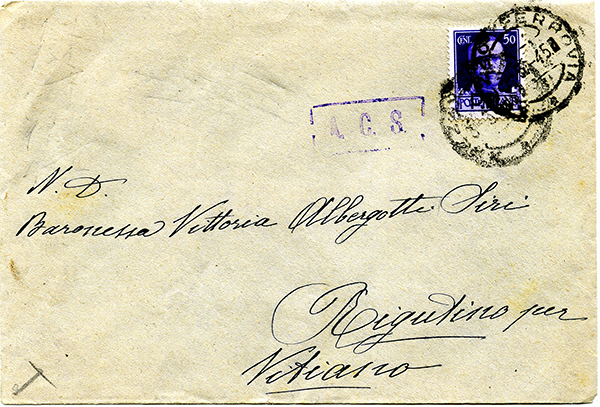 CENT. 50
FERROVIA
POSTE ITALIANE
A. C. S.
N. D.
Baronessa Vittoria Albergotti Siri
Rigutino per
Vitiano